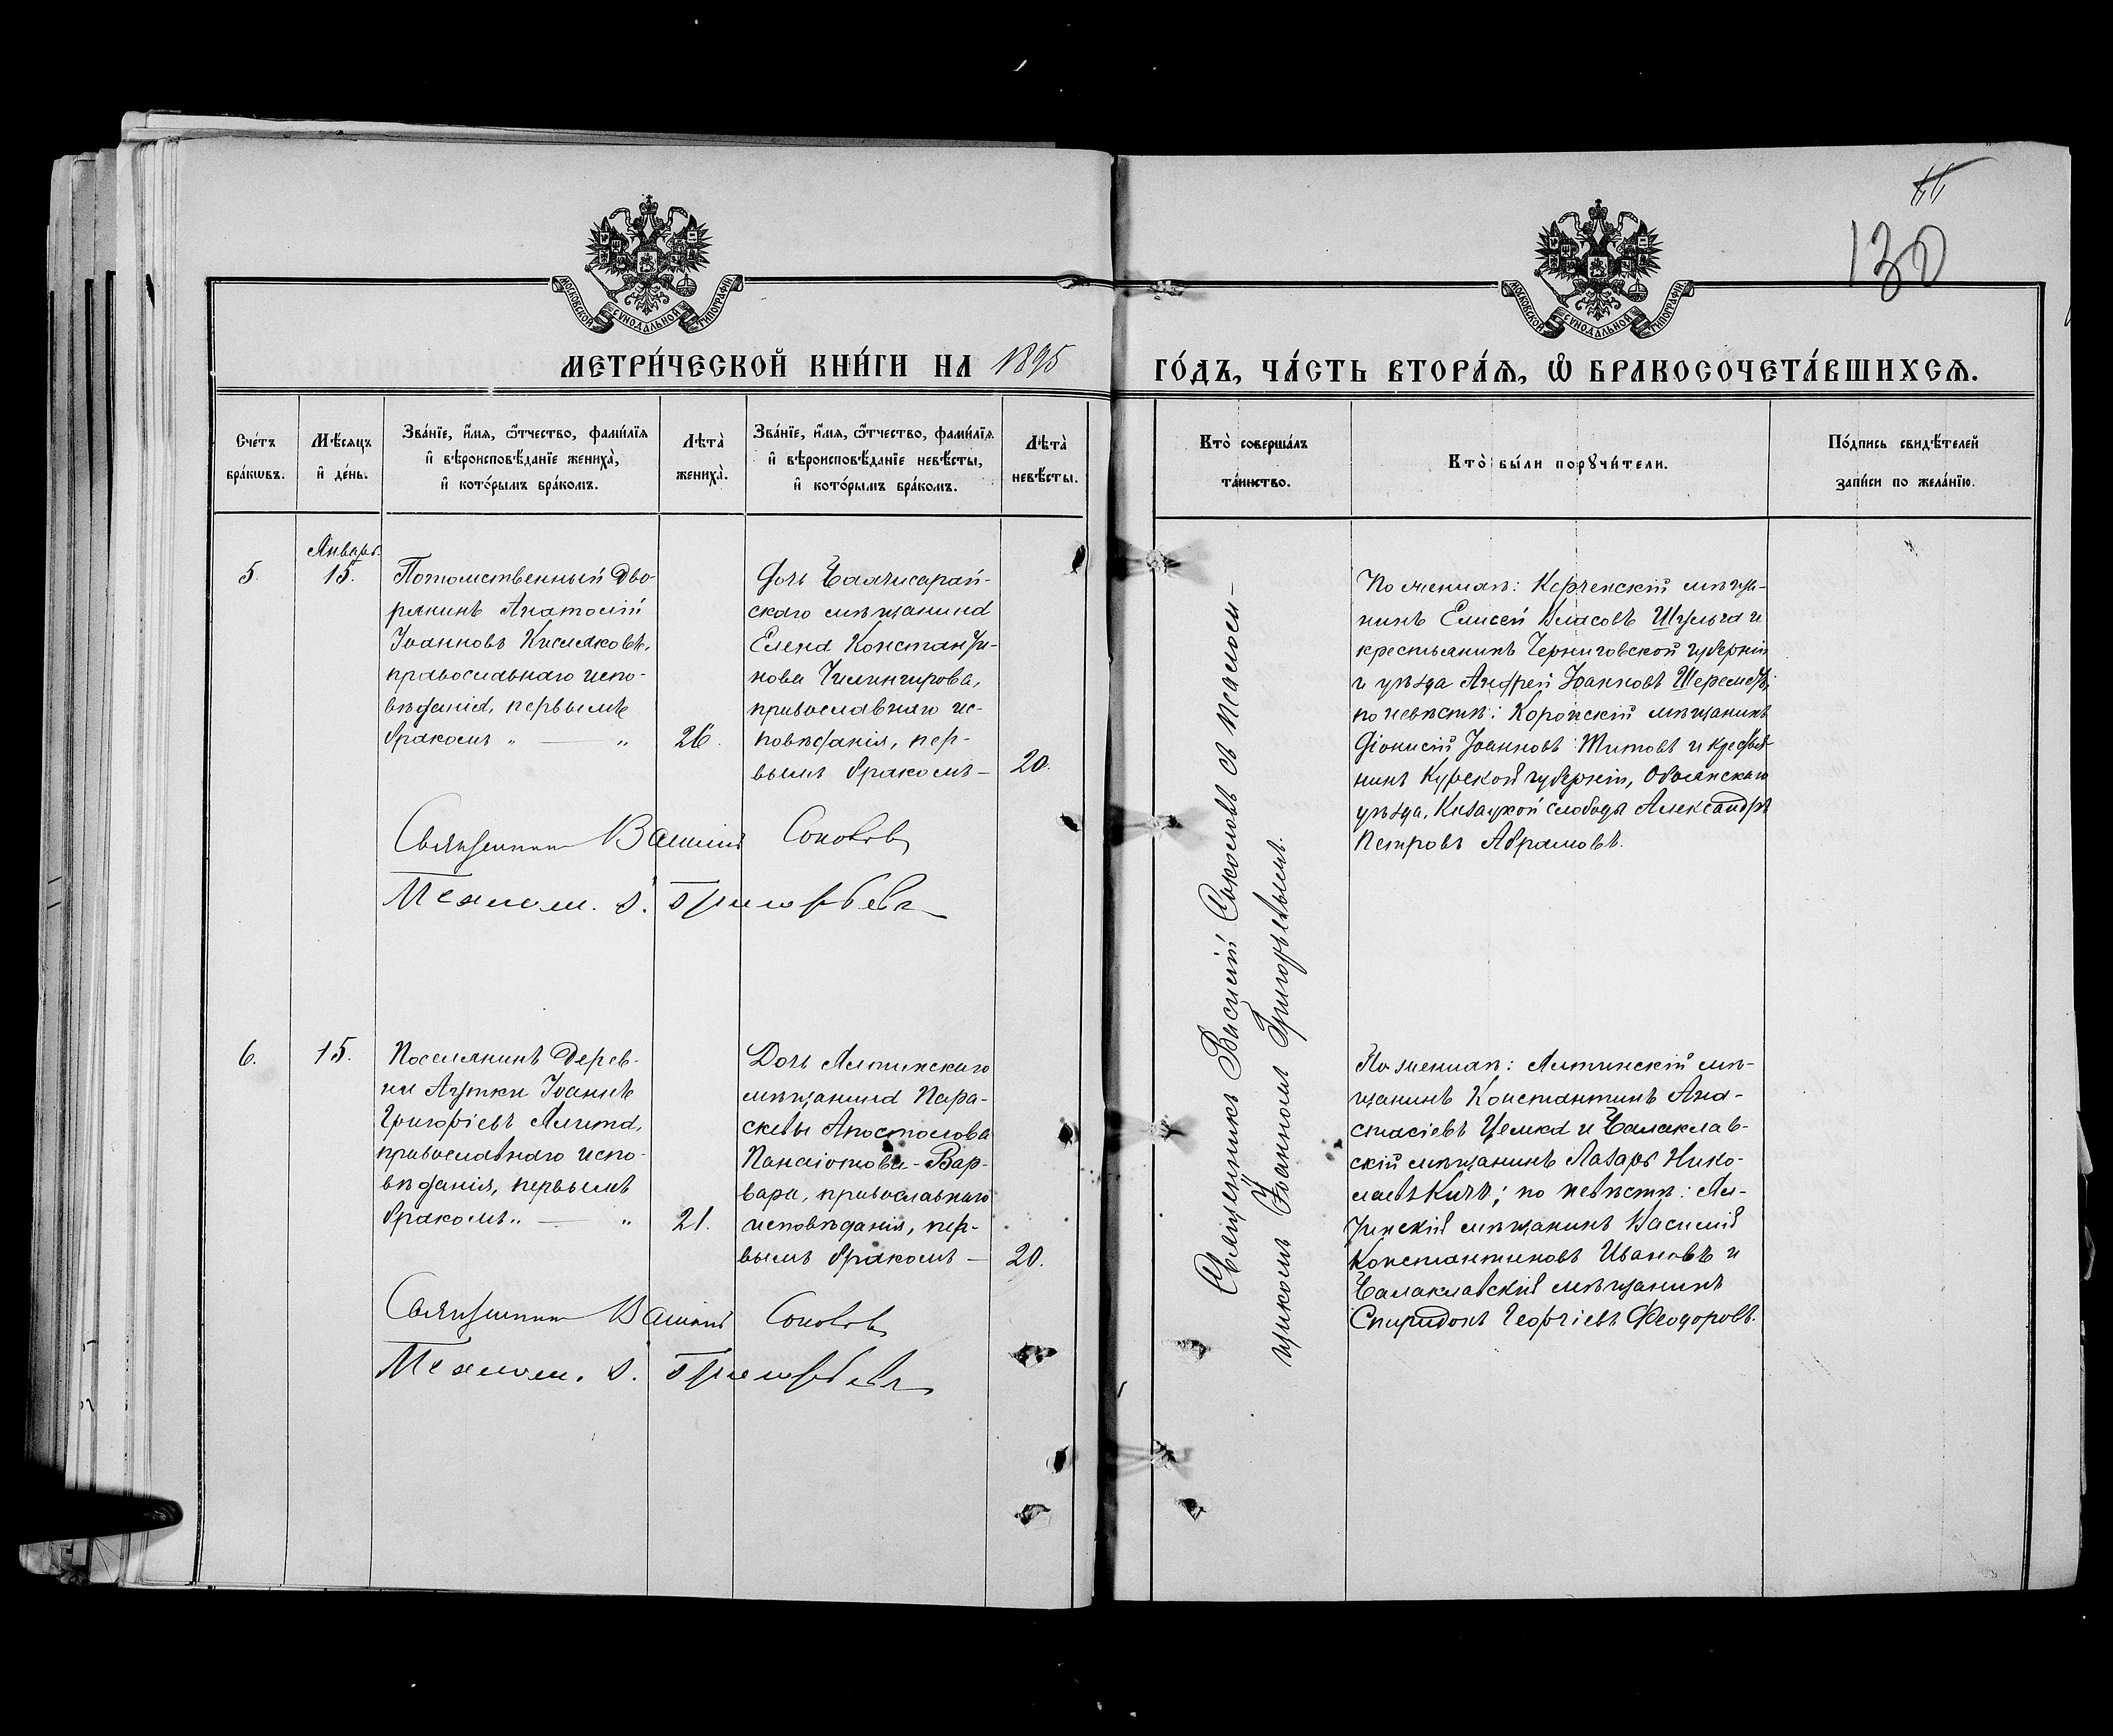 66
130
МОСКОВСКОЙ СѴНОДАЛЬНОЙ ТИПОГРАФІИ
МОСКОВСКОЙ СѴНОДАЛЬНОЙ ТИПОГРАФІИ
МЕТРИ́ЧЕСКОЙ КНИ́ГИ НА 1895 ГО́ДЪ, ЧА́СТЬ ВТОРА́Ѧ, Ѡ҆ БРАКОСОЧЕТА́ВШИХСѦ.
Сче́тъ
бра́кѡвъ.
Мѣ́сѧцъ
и҆ де́нь.
Зва́нїе, и҆́мѧ, ѻ҆́тчество, фами́лїѧ
и҆ вѣроисповѣ́данїе жениха̀,
и҆ кото́рымъ бра́комъ.
Лѣта̀
жениха̀.
Зва́нїе, и҆́мѧ, ѻ҆́тчество, фами́лїѧ
и҆ вѣроисповѣ́данїе невѣ́сты,
и҆ кото́рымъ бра́комъ.
Лѣта̀
невѣ́сты.
Кто̀ соверша́лъ
та́инство.
Кто̀ бы́ли порꙋчи́тели.
По́дпись свидѣ́телей
за́писи по жела́нїю.
5.
Январь.
15.
Потомственный Дво-
рянинъ Анатолій
Іоанновъ Кисляковъ,
православнаго испо-
вѣданія, первымъ
бракомъ „ — „
26.
Дочь Бахчисарай-
скаго мѣщанина
Елена Константи-
нова Чилингирова,
православнаго ис-
повѣданія, пер-
вымъ бракомъ —
20.
Священникъ Василій Соколовъ
Псаломщ. І. Григорьевъ
Священникъ Василій Соколовъ съ псалом-
щикомъ Іоанномъ Григорьевымъ.
По женихѣ: Керченскій мѣща-
нинъ Елисей Власовъ Шульга и
крестьянинъ Черниговской губерніи
и уѣзда Андрей Іоанновъ Шереметъ;
по невѣстѣ: Корочскій мѣщанинъ
Діонисій Іоанновъ Титовъ и крестья-
нинъ Курской губерніи, Обоянскаго
уѣзда, Казацкой слободы Александръ
Петровъ Абрамовъ.
6.
15.
Поселянинъ Дерев-
ни Аутки Іоаннъ
Григоріевъ Ялита,
православнаго испо-
вѣданія, первымъ
бракомъ „ — „
21.
Дочь Ялтинскаго
мѣщанина Пара-
скевы Апостолова
Панаіотова - Вар-
вара, православнаго
исповѣданія, пер-
вымъ бракомъ —
20.
Священникъ Василій Соколовъ
Псаломщ. І. Григорьевъ
По женихѣ: Ялтинскій мѣ-
щанинъ Константинъ Ана-
стасіевъ Цемка и Балаклав-
скій мѣщанинъ Лазарь Нико-
лаевъ; по невѣстѣ: Ял-
тинскій мѣщанинъ Василій
Константиновъ Ивановъ и
Балаклавскій мѣщанинъ
Спиридонъ Георгіевъ Феодоровъ.